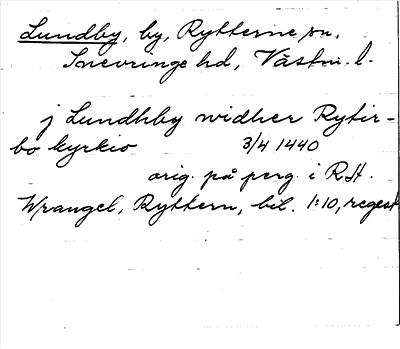 Lundby, by, Rytterne sn,
Snevringe hd, Västm. l.
j Lundhby widher Rytir-
bo kyrkio 3/4 1440
orig. på perg. i R.H.
Wrangel, Ryttern, bil. 1:10, regest